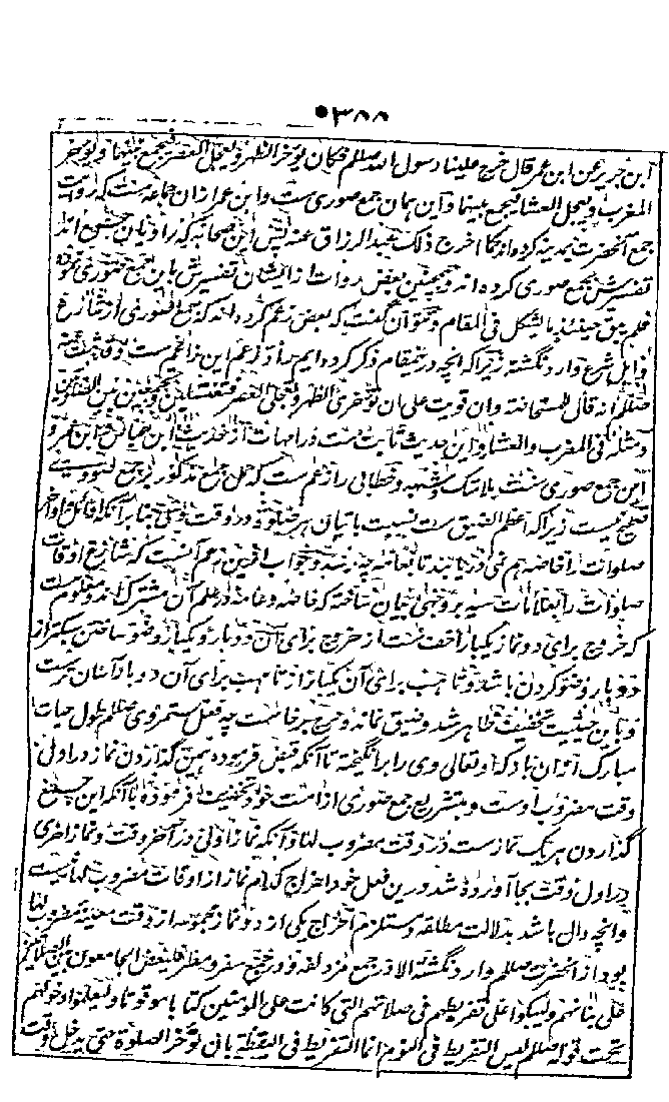 ٣٥٥
ابن جریر عن ابن عمر قال خرج علینا رسول الله صلعم فکان یوخر الظهر ویعجل العصر فیجمع بینهما ویوخر
المغرب ویعجل العشا فیجمع بینهما واین همان جمع صوری ست وابن عمر ازان جماعه ست که روایت
جمع آنحضرت بمدینه کرده اند کما اخرج ذلک عبد الرزاق عنه پس این صحابه که راویان جمع اند
تفسیرش بجمع صوری کرده اند و همچنین بعض روات از ایشان تفسیرش باین جمع صوری نموده
فلم یبق حینئذ ما یشکل فی المقام و نتوان گفت که بعض زعم کرده اند که جمع صوری از شارع
و اهل شرع وارد نگشته زیرا که انچه درینمقام ذکر کرده ایم راد زعم این زاعم ست و ثابت
صلعم انه قال للمستحاضة وان قویت علی ان توخری الظهر وتعجلی العصر فتغتسلین وتجمعین بین الصلوتین
ومثله فی المغرب والعشا و این حدیث ثابت ست در امهات از حدیث ابن عباس و ابن عمر و
این جمع صوری ست بلا شک و شبهه و خطابی را زعم ست که حمل جمع مذکور بر جمع صوری
صحیح نیست زیرا که اعظم الضیق ست نسبت باتیان هر صلوة در وقت وی بنا بر آنکه اوائل واواخر
صلوات را خاصه هم نمی دریابند تا بعامه چه رسد و جواب ازین زعم آنست که شارع اوقات
صلوات را بعلامات حسیه بر وجهی بیان ساخته که خاصه وعامه در علم آن مشترک اند و معلوم ست
که خروج برای دو نماز یکبار اخف ست از خروج برای آن دوبار و یکبار وضو ساختن سبکتر از
دو بار وضو کردن باشد و تاهب برای آن یکبار از تاهب برای آن دو بار آسان تر ست
و باین حیثیت تخفیف ظاهر شد و ضیق نماند و حرج برخاست چه فعل مستمر وی صلعم طول حیات
مبارک ازان باز که او تعالی وی را برانگیخته تا آنکه قبض فرموده همین گذاردن نماز در اول
وقت مضروب اوست و بتشریع جمع صوری از امت خود تخفیف فرموده با آنکه این جمع
گذاردن هر یک نماز ست در وقت مضروب لها و آنکه نماز اولی در آخر وقت و نماز اخری
در اول وقت بجا آورده شد و درین فعل خود اخراج کدام نماز از اوقات مضروب لها نیست
وانچه دال باشد بدلالت مطلقه و مستلزم اخراج یکی از دو نماز مجموعه از وقت معینه مضروب لها
بود از آنحضرت صلعم وارد نگشته الا در جمع مزدلفه و در جمع سفر و مطر فلیعض الجامعون بین الصلاتین
علی بنانهم ولیبکوا علی تفریطهم فی صلاتهم التی کانت علی المومنین کتابا موقوتا ولیعلموا دخولهم
تحت قوله صلعم لیس التفریط فی النوم انما التفریط فی الیقظة بان توخر الصلوة حتی یدخل وقت